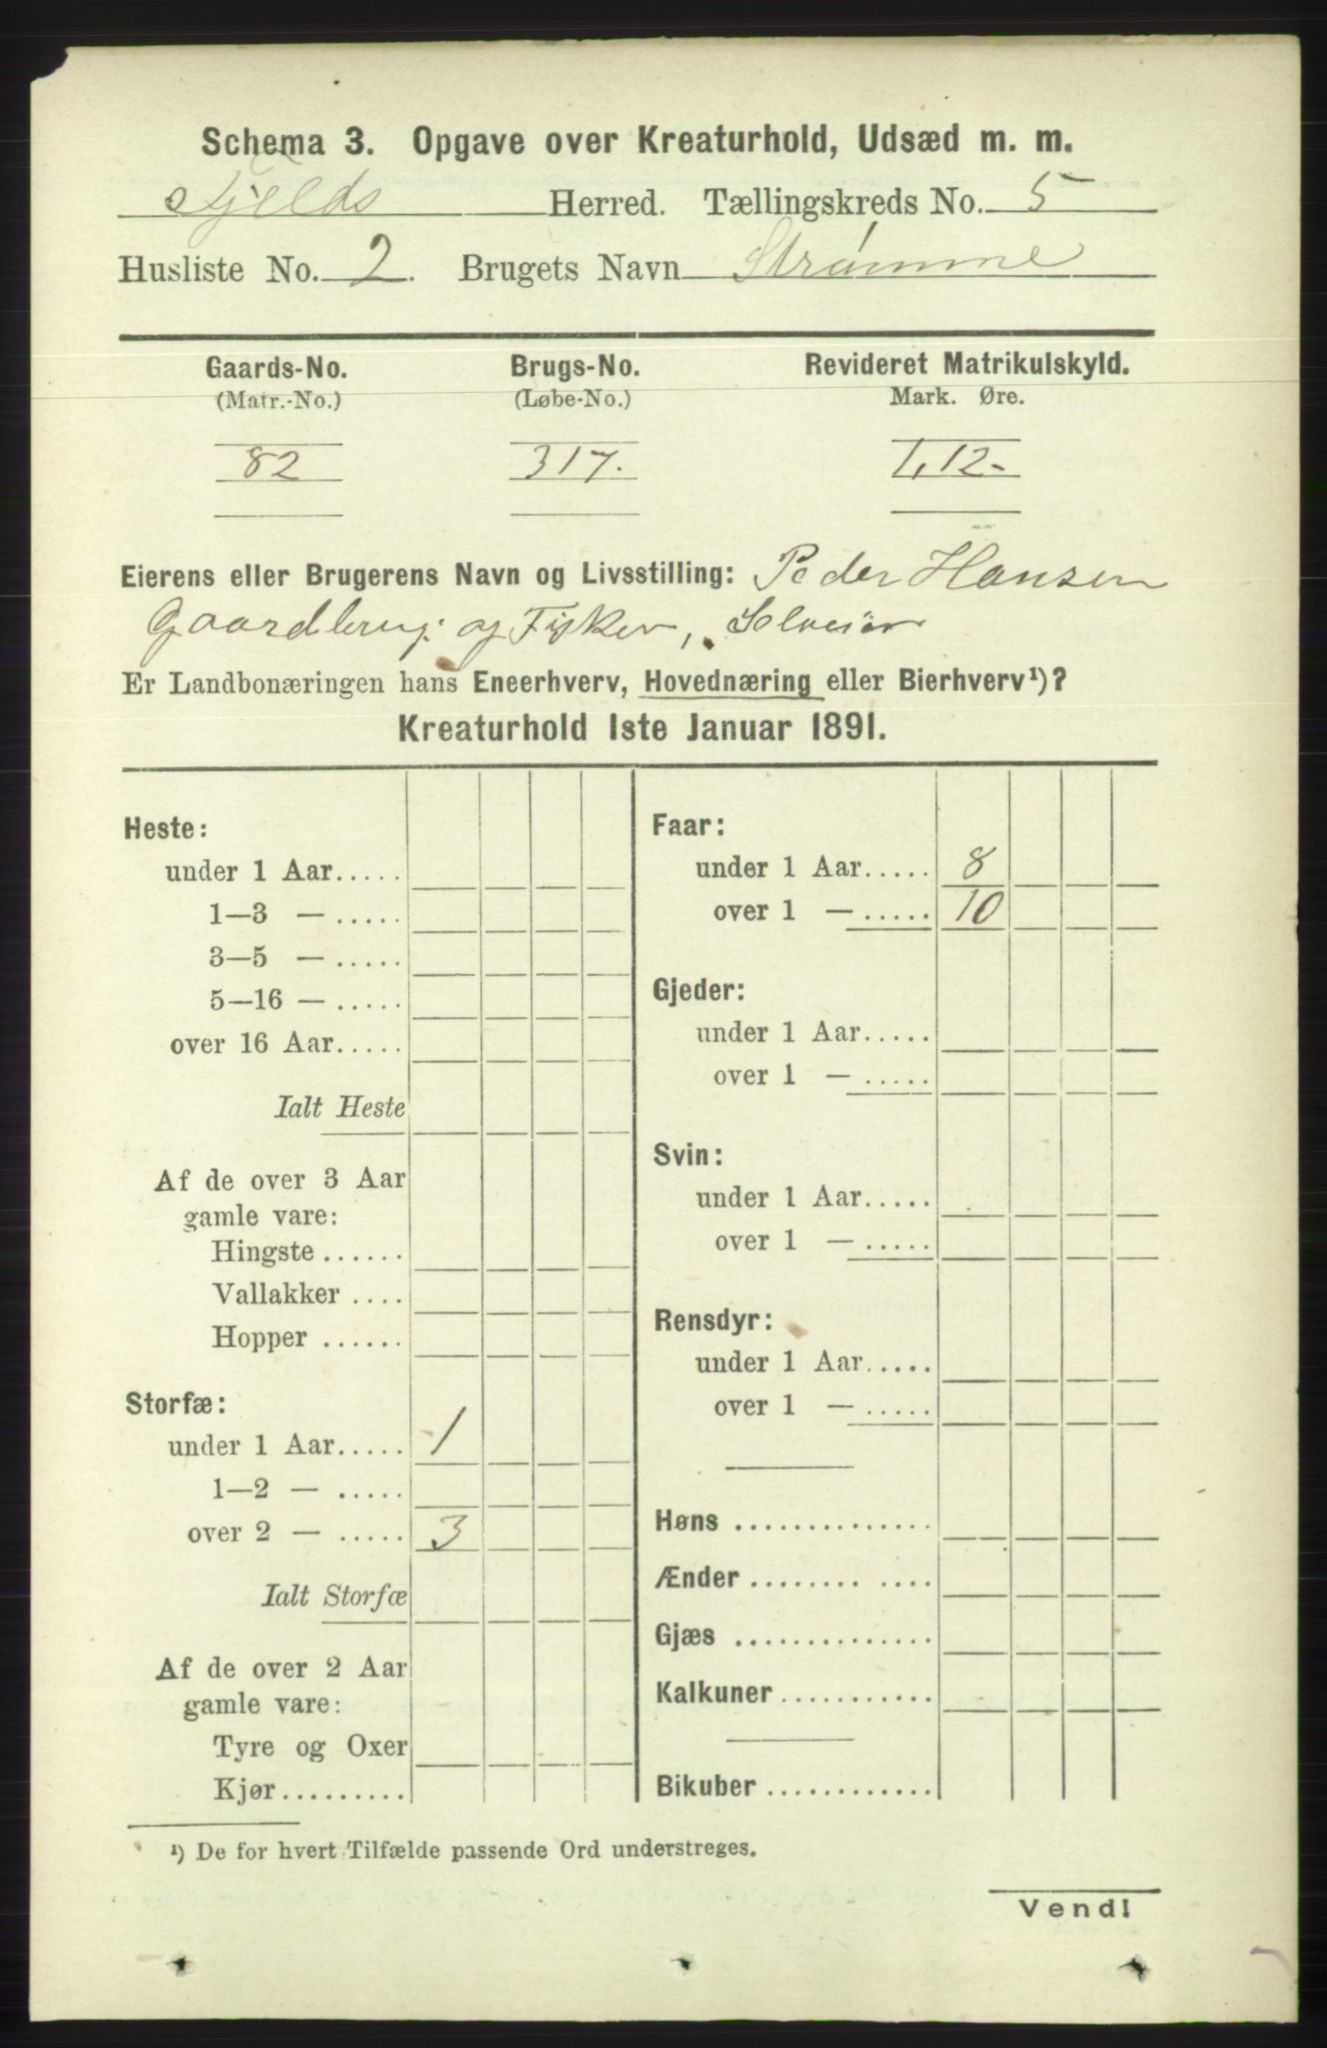 Schema 3. Opgave over Kreaturhold, Udsæd m. m.
Fjelds Herred. Tællingskreds No. 5
Husliste No. 2. Brugets Navn Strømme
Gaards-No. Brugs-No. Revideret Matrikulskyld.
(Matr.-No.) (Løbe-No.) Mark. Øre.
82 317. 1,12-
Eierens eller Brugerens Navn og Livsstilling: Peder Hansen
Gaardbrug: og Fisker, Selveier
Er Landbonæringen hans Eneerhverv, Hovednæring eller Bierhverv¹)?
Kreaturhold 1ste Januar 1891.
Heste:
under 1 Aar.....
1—3 — .....
3—5 — .....
5—16 — .....
over 16 Aar.....
Ialt Heste
Af de over 3 Aar
gamle vare:
Hingste ......
Vallakker ....
Hopper ......
Storfæ:
under 1 Aar..... 1
1—2 — .....
over 2 — ..... 3
Ialt Storfæ
Af de over 2 Aar
gamle vare:
Tyre og Oxer
Kjør.........
Faar:
under 1 Aar..... 8
over 1 — ..... 10
Gjeder:
under 1 Aar.....
over 1 — .....
Svin:
under 1 Aar.....
over 1 — .....
Rensdyr:
under 1 Aar.....
over 1 — .....
Høns ..............
Ænder ........ ....
Gjæs ..............
Kalkuner...........
Bikuber ............
¹) De for hvert Tilfælde passende Ord understreges.
Vend!